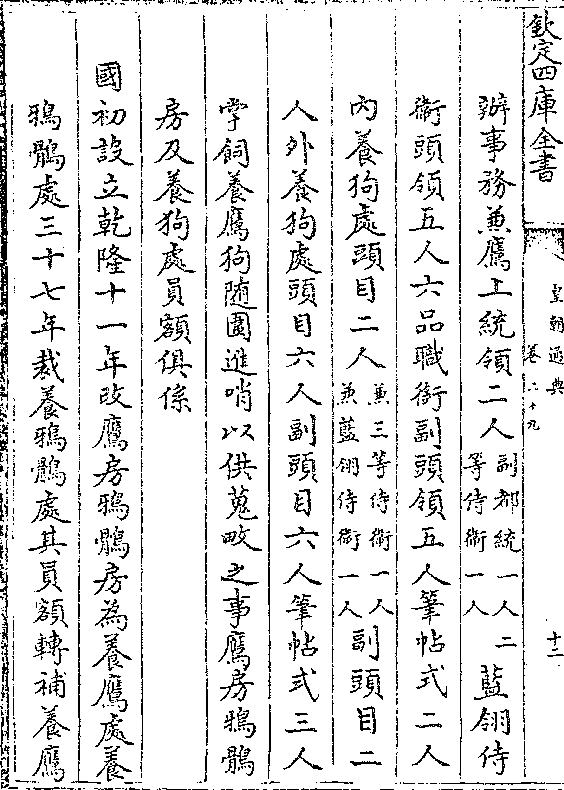 欽定四庫全書
皇朝通典
卷三十九
十二
辦事務兼鷹上統領二人副都統一人二等侍衛一人藍翎侍
衛頭領五人六品職銜副頭領五人筆帖式二人
內養狗處頭目二人兼三等侍衛一人兼藍翎侍衛一人副頭目二
人外養狗處頭目六人副頭目六人筆帖式三人
掌飼養鷹狗隨圍進哨以供蒐畋之事鷹房鴉鶻
房及養狗處員額俱係
國初設立乾隆十一年改鷹房鴉鶻房為養鷹處養
鴉鶻處三十七年裁養鴉鶻處其員額轉補養鷹